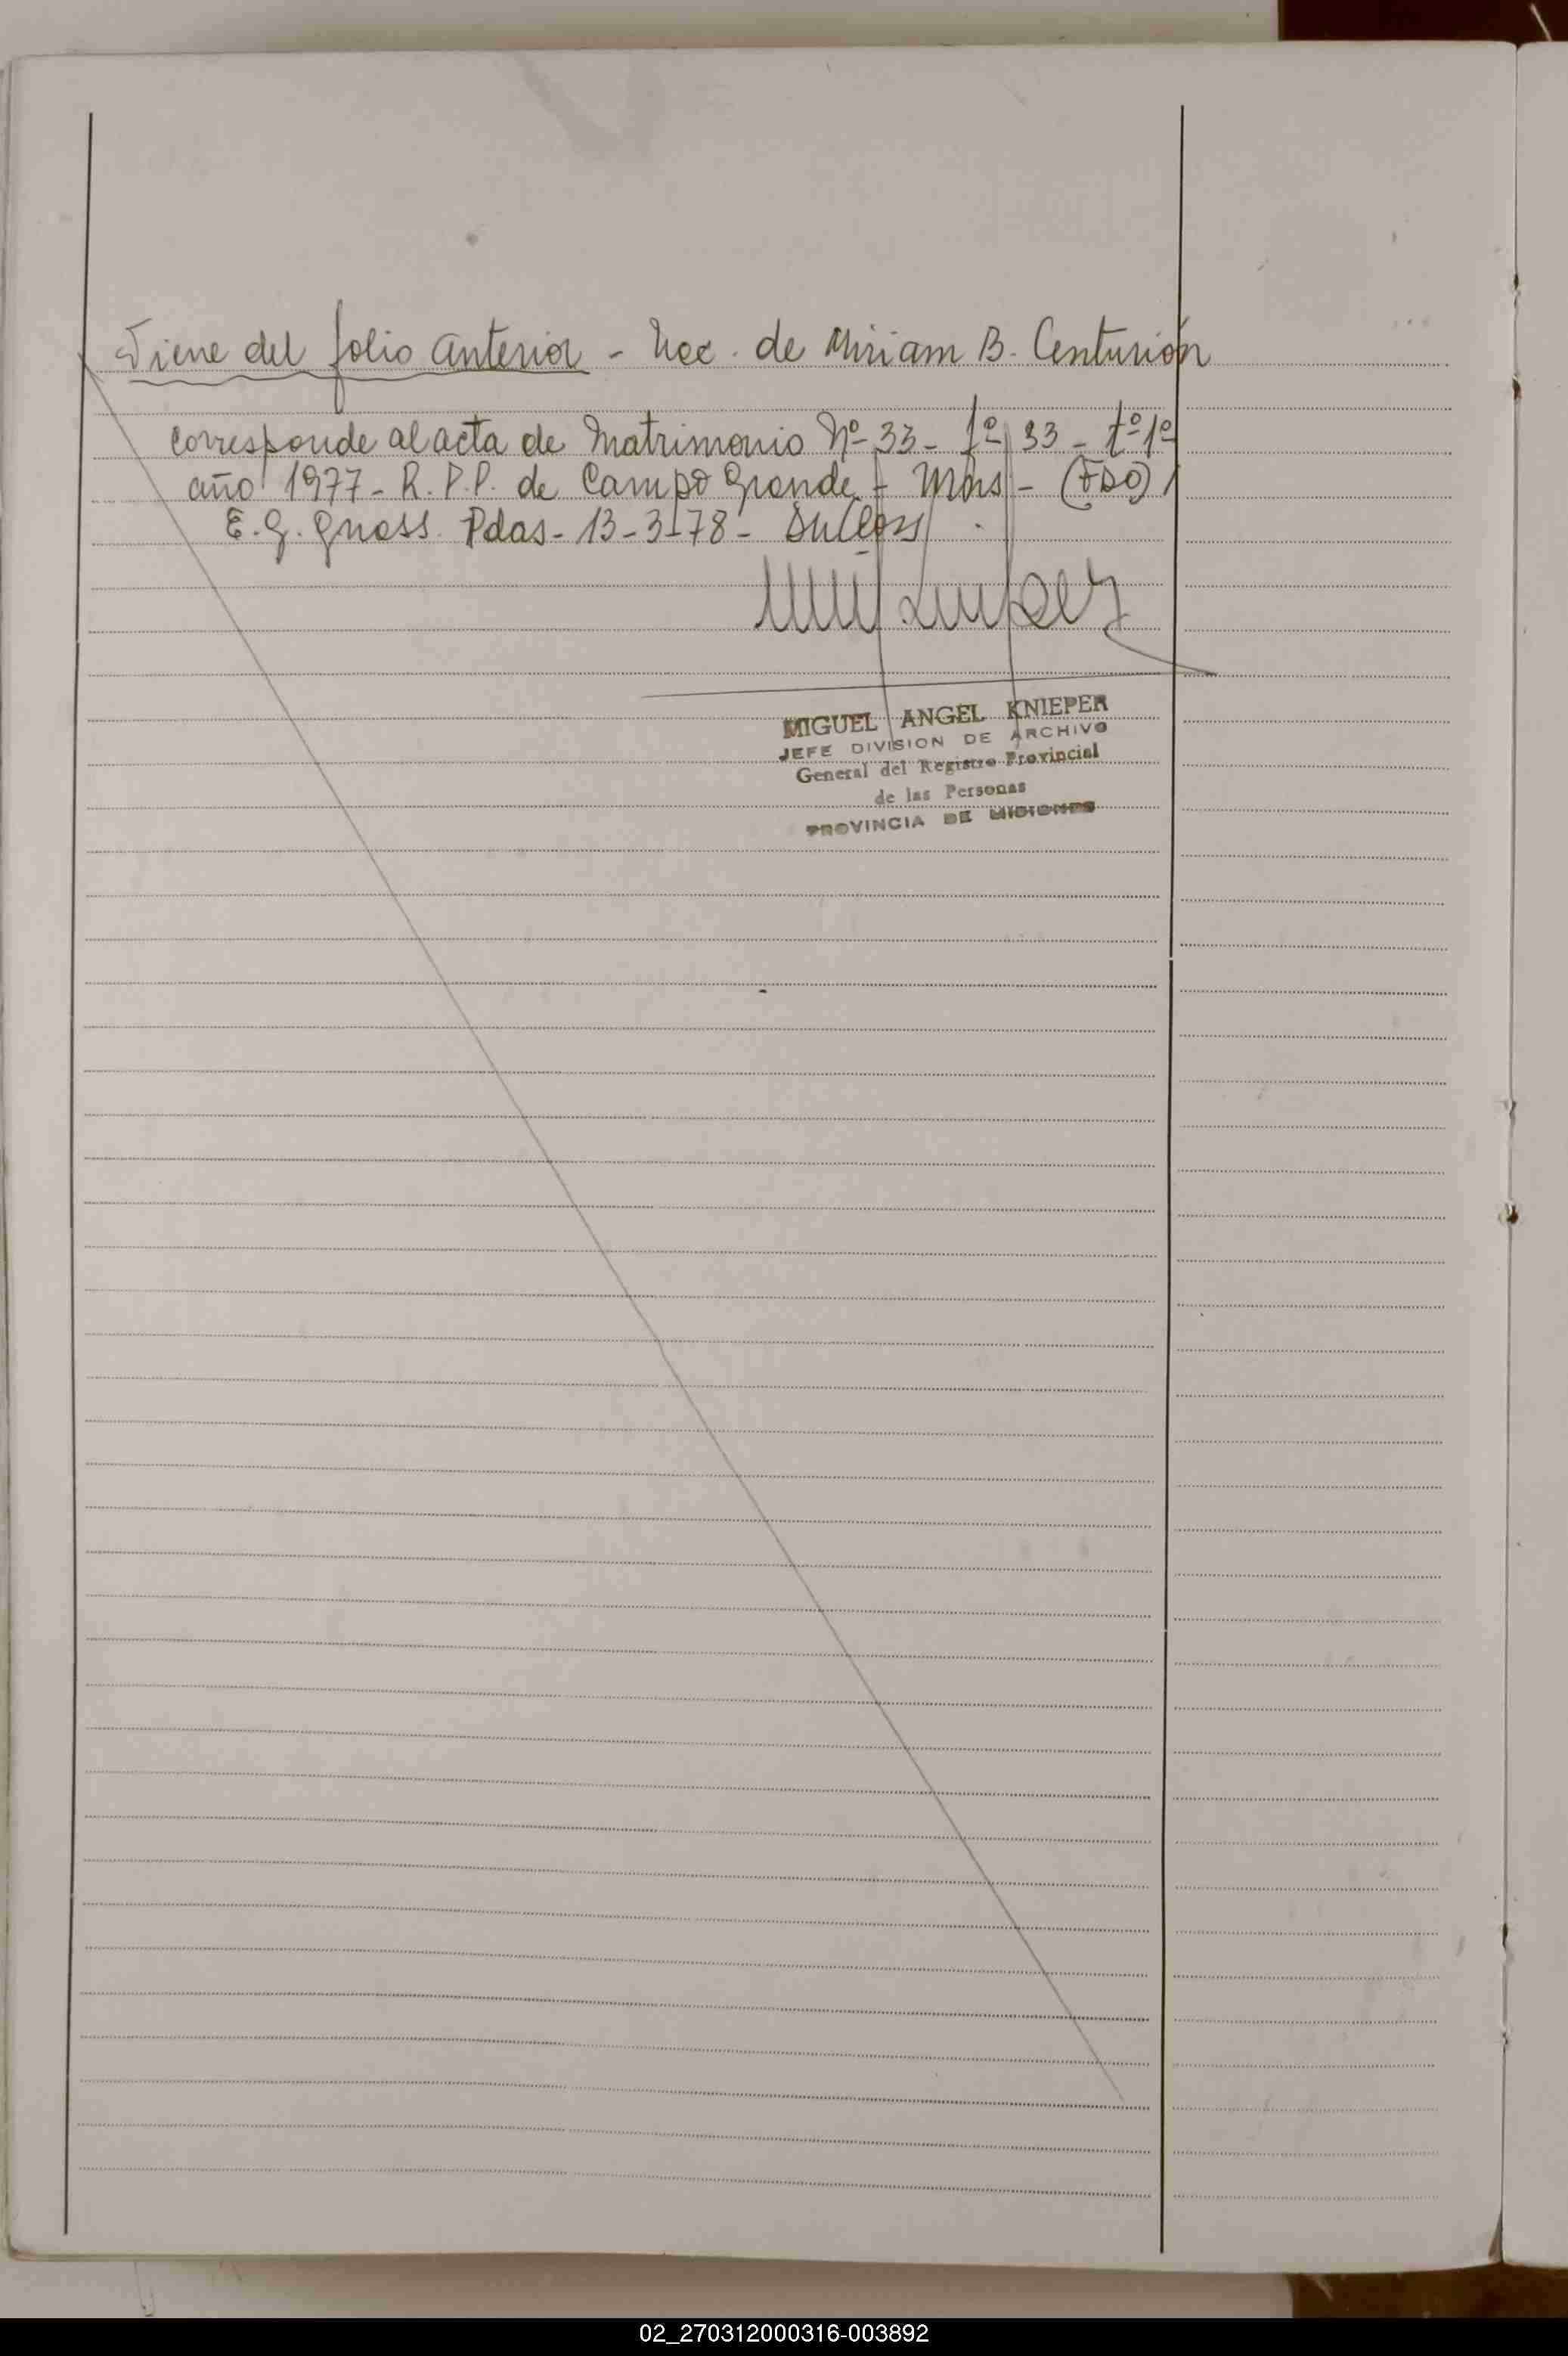 Viene del folio anterior - Nac. de Miriam B. Centurión
corresponde al acta de Matrimonio Nº 33 - fº 33 - tº 1º
año 1977 - R.P.P. de Campo Grande - Mnes - (FDO)
E. G. Pdas - 13-3-78 -
MIGUEL ANGEL KNIEPER
JEFE DIVISION DE ARCHIVO
General del Registro Provincial
de las Personas
PROVINCIA DE MISIONES
02_270312000316-003892